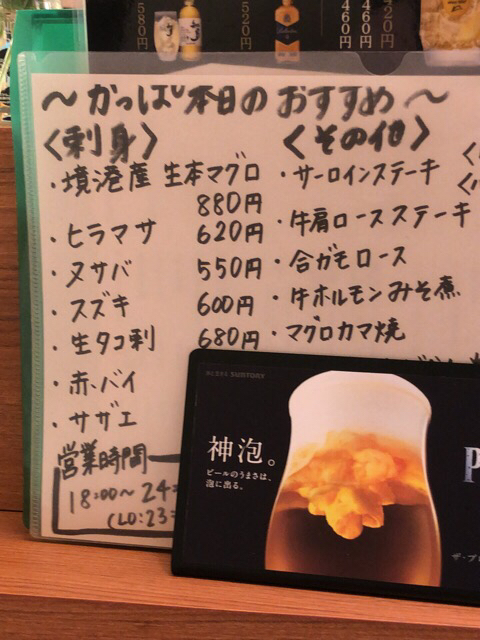 580円
520円
460円
460円
420円
～かっぱ本日のおすすめ～
〈刺身〉
・境港産 生本マグロ
880円
・ヒラマサ 620円
・〆サバ 550円
・スズキ 600円
・生タコ刺 680円
・赤バイ
・サザエ
営業時間
18:00～24:
(LO:23:
〈その他〉
・サーロインステーキ
・牛肩ロースステーキ
・合ガモロース
・牛ホルモンみそ煮
・マグロカマ焼
SUNTORY
神泡。
ビールのうまさは、
泡に出る。
P
ザ・プ